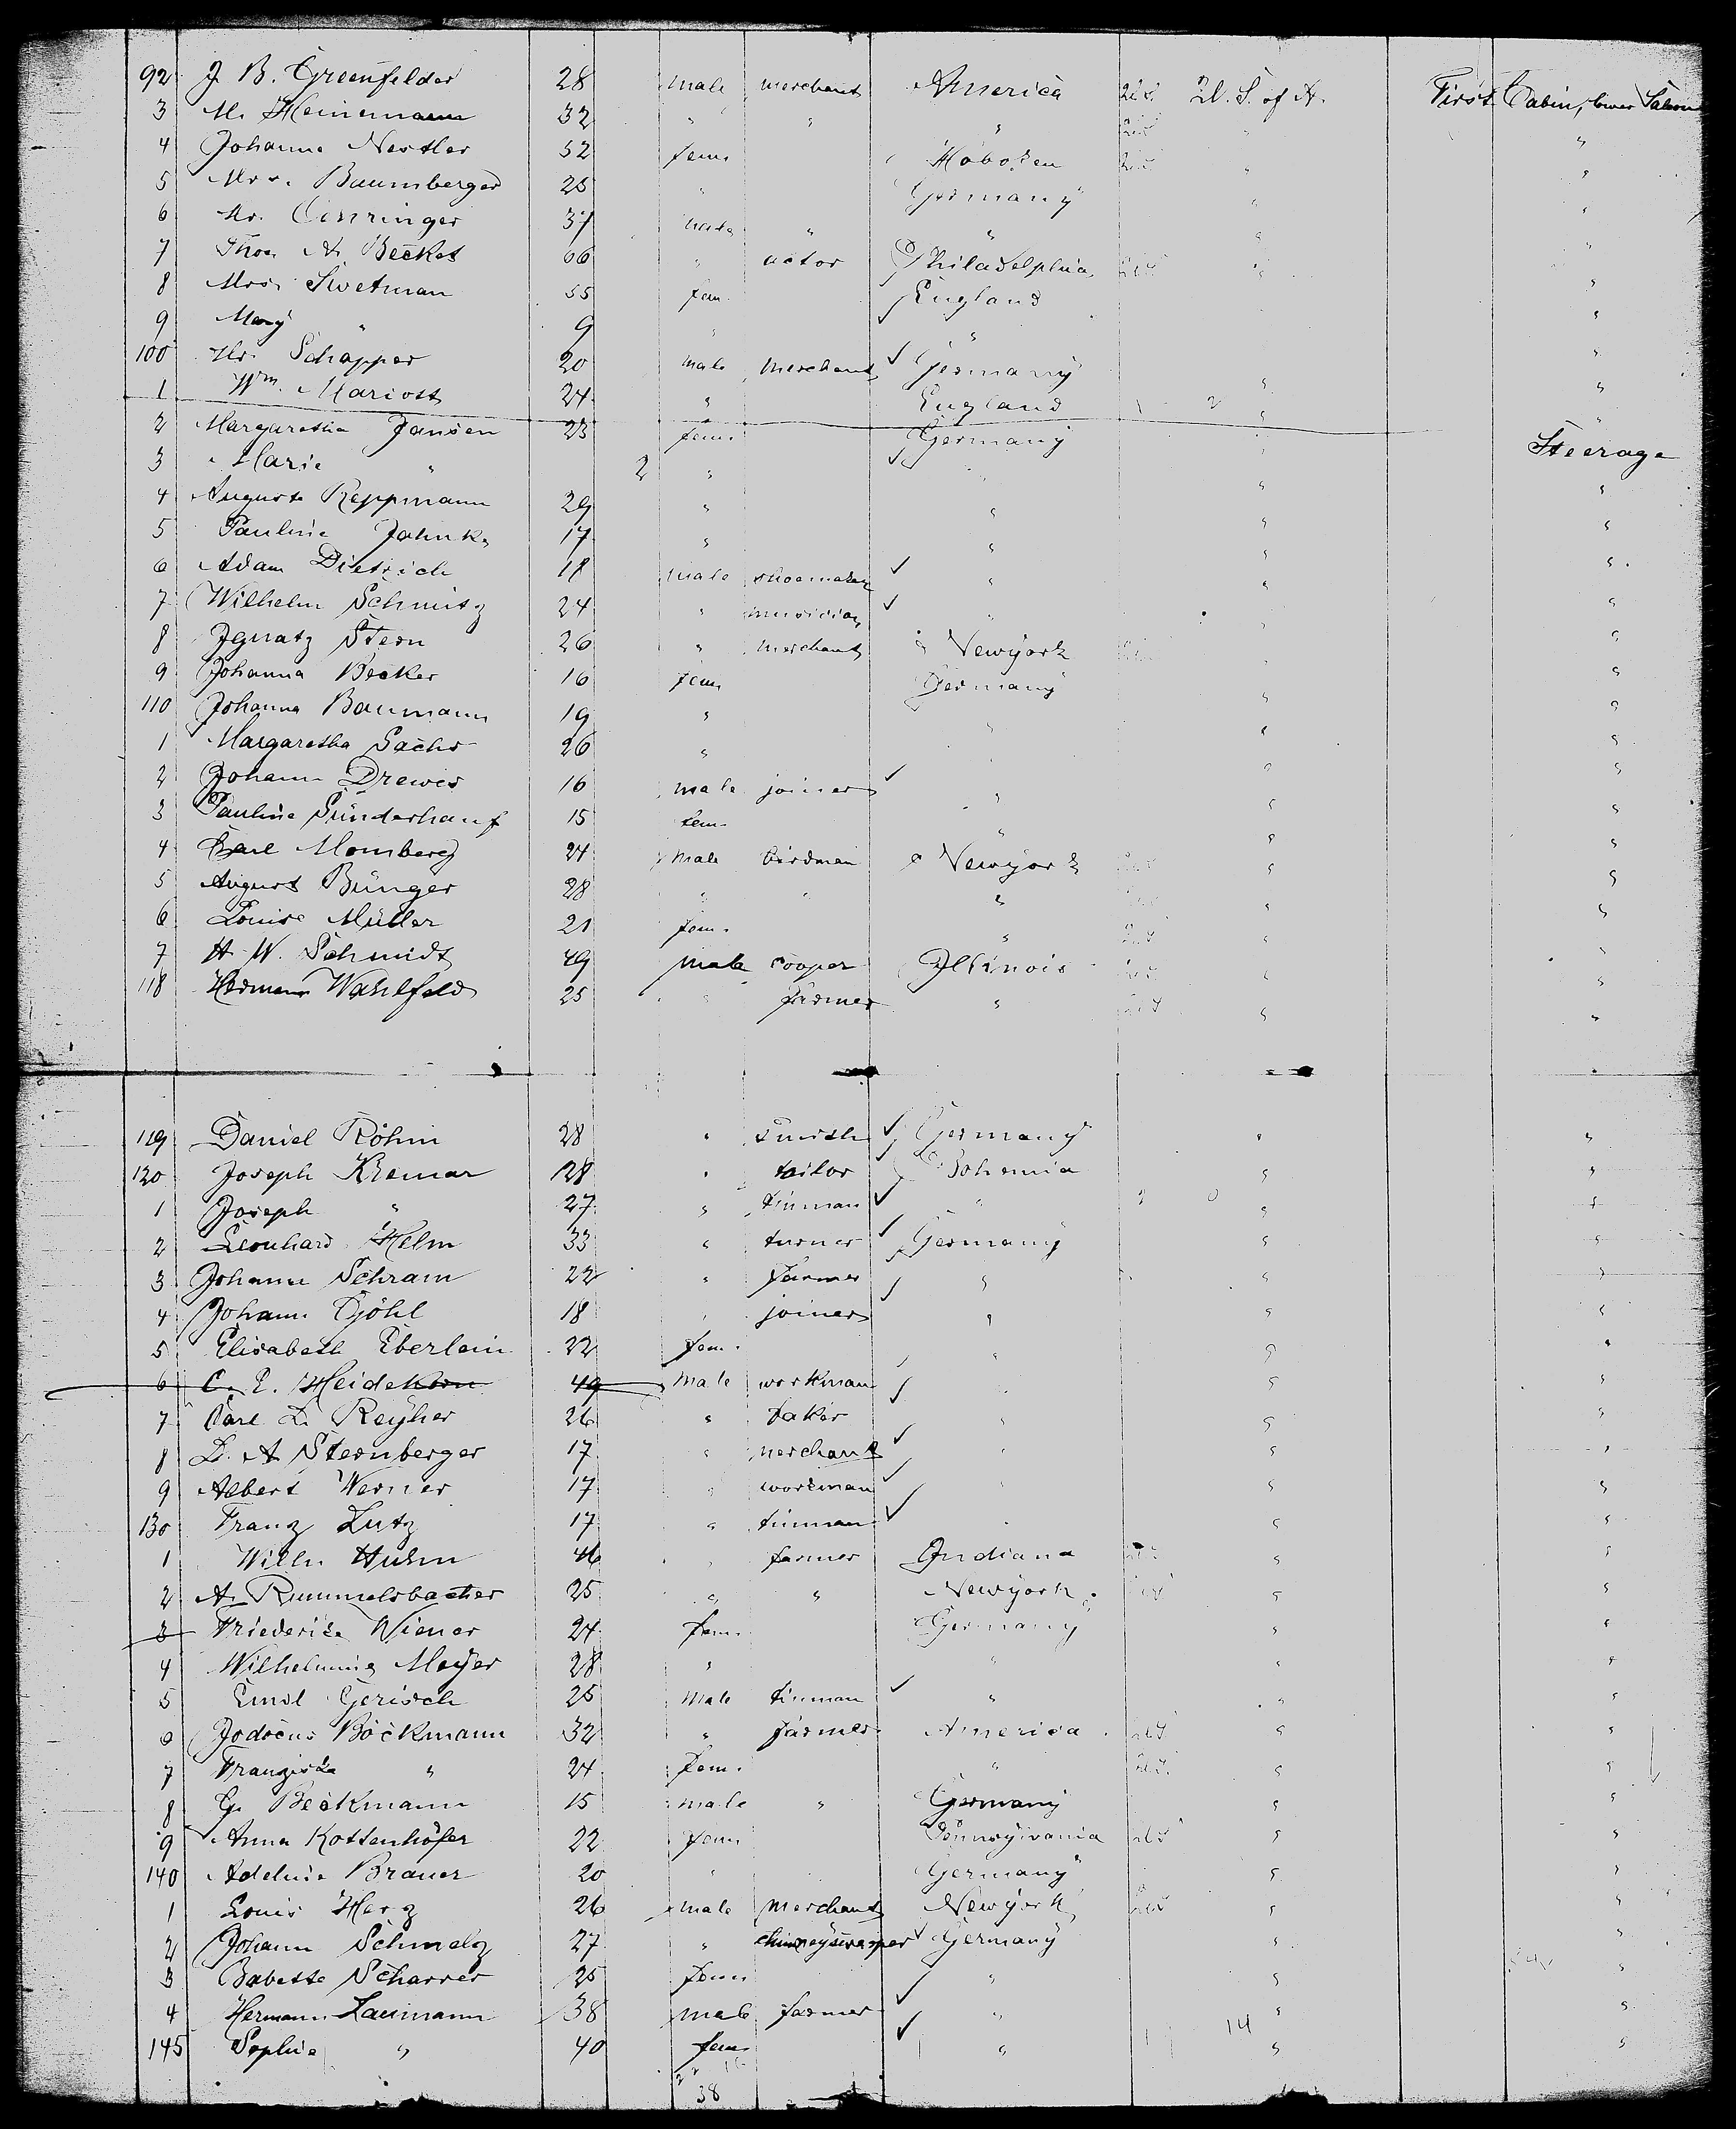 92 J. B. Greenfelder 28 male merchant America U.S. U. S. of A. First Cabin, lower Saloon
3 M. Heinemann 32 " " " U.S. " "
4 Johanna Nestler 52 fem. Hoboken U.S. " "
5 Mrs. Baumberger 25 " Germany " "
6 Mr. 37 male " " " "
7 Thos. A. Becket 66 " actor Philadelphia U.S. " "
8 Mrs. Swetman 55 fem. England "
9 Mary " 9 " " "
100 Mr. Schapper 20 male merchant ✓ Germany " "
1 Wm. Mariott 24 " England 2 " "
2 Margaretha Jansen 23 fem. Germany " Steerage
3 Marie " 2 " ✓ " " "
4 Auguste Reppmann 29 " " " "
5 Pauline Jahnke 17 " " " "
6 Adam Dietrich 18 male shoemaker ✓ " " "
7 Wilhelm Schmitz 24 " musician ✓ " " "
8 Ignatz Stern 26 " merchant Newyork " "
9 Johanna Becker 16 fem. Germany " "
110 Johanna Baumann 19 " " " "
1 Margaretha Sachs 26 " " " "
2 Johann Drewes 16 male joiner ✓ " " "
3 Pauline Sünderhauf 15 fem. " " "
4 Carl Momberg 24 male birdman Newyork U.S. " "
5 August Bünger 28 " " " U.S. " "
6 Louise Müller 21 fem. " U.S. " "
7 H. W. Schmidt 49 male cooper Illinois U.S. " "
118 Hermann Wahlfeld 25 " farmer " U.S. " "
119 Daniel Röhm 28 " smith ✓ Germany " "
120 Joseph Kremar 28 " tailor ✓ Bohemia " "
1 Joseph " 27 " tinman ✓ " 0 " "
2 Leonhard Helm 33 " turner ✓ Germany " "
3 Johann Schram 22 " farmer ✓ " " "
4 Johann Göhl 18 " joiner " " "
5 Elisabeth Eberlein 22 fem. " " "
6 C. E. Heidekorn 49 male workman ✓ " " "
7 Carl L. Reyher 26 " baker " " "
8 L. A. Sternberger 17 " merchant ✓ " " "
9 Albert Werner 17 " workman ✓ " " "
130 Franz Lutz 17 " tinman ✓ " " "
1 Wilh. Huhn 46 " farmer Indiana U.S. " "
2 A. Rummelsbacher 25 " " Newyork U.S. " "
3 Friederike Wiener 24 fem. Germany " "
4 Wilhelmine Meyer 28 " " " "
5 Emil Gerisch 25 male tinman ✓ " " "
6 Jodocus Böckmann 32 " farmer America U.S. " "
7 Franziska " 24 fem. " U.S. " "
8 G. Beckmann 15 male " Germany " "
9 Anna Kottenhöfer 22 fem. Pennsylvania U.S. " "
140 Adeline Brauer 20 " Germany " "
1 Louis Herz 26 male merchant Newyork U.S. " "
2 Johann Schmelz 27 " chimneysweeper ✓ Germany " "
3 Babette Scharrer 25 fem. " " "
4 Hermann Laumann 38 male farmer ✓ " " "
145 Sophie " 40 fem. ✓ " 14 " "
38